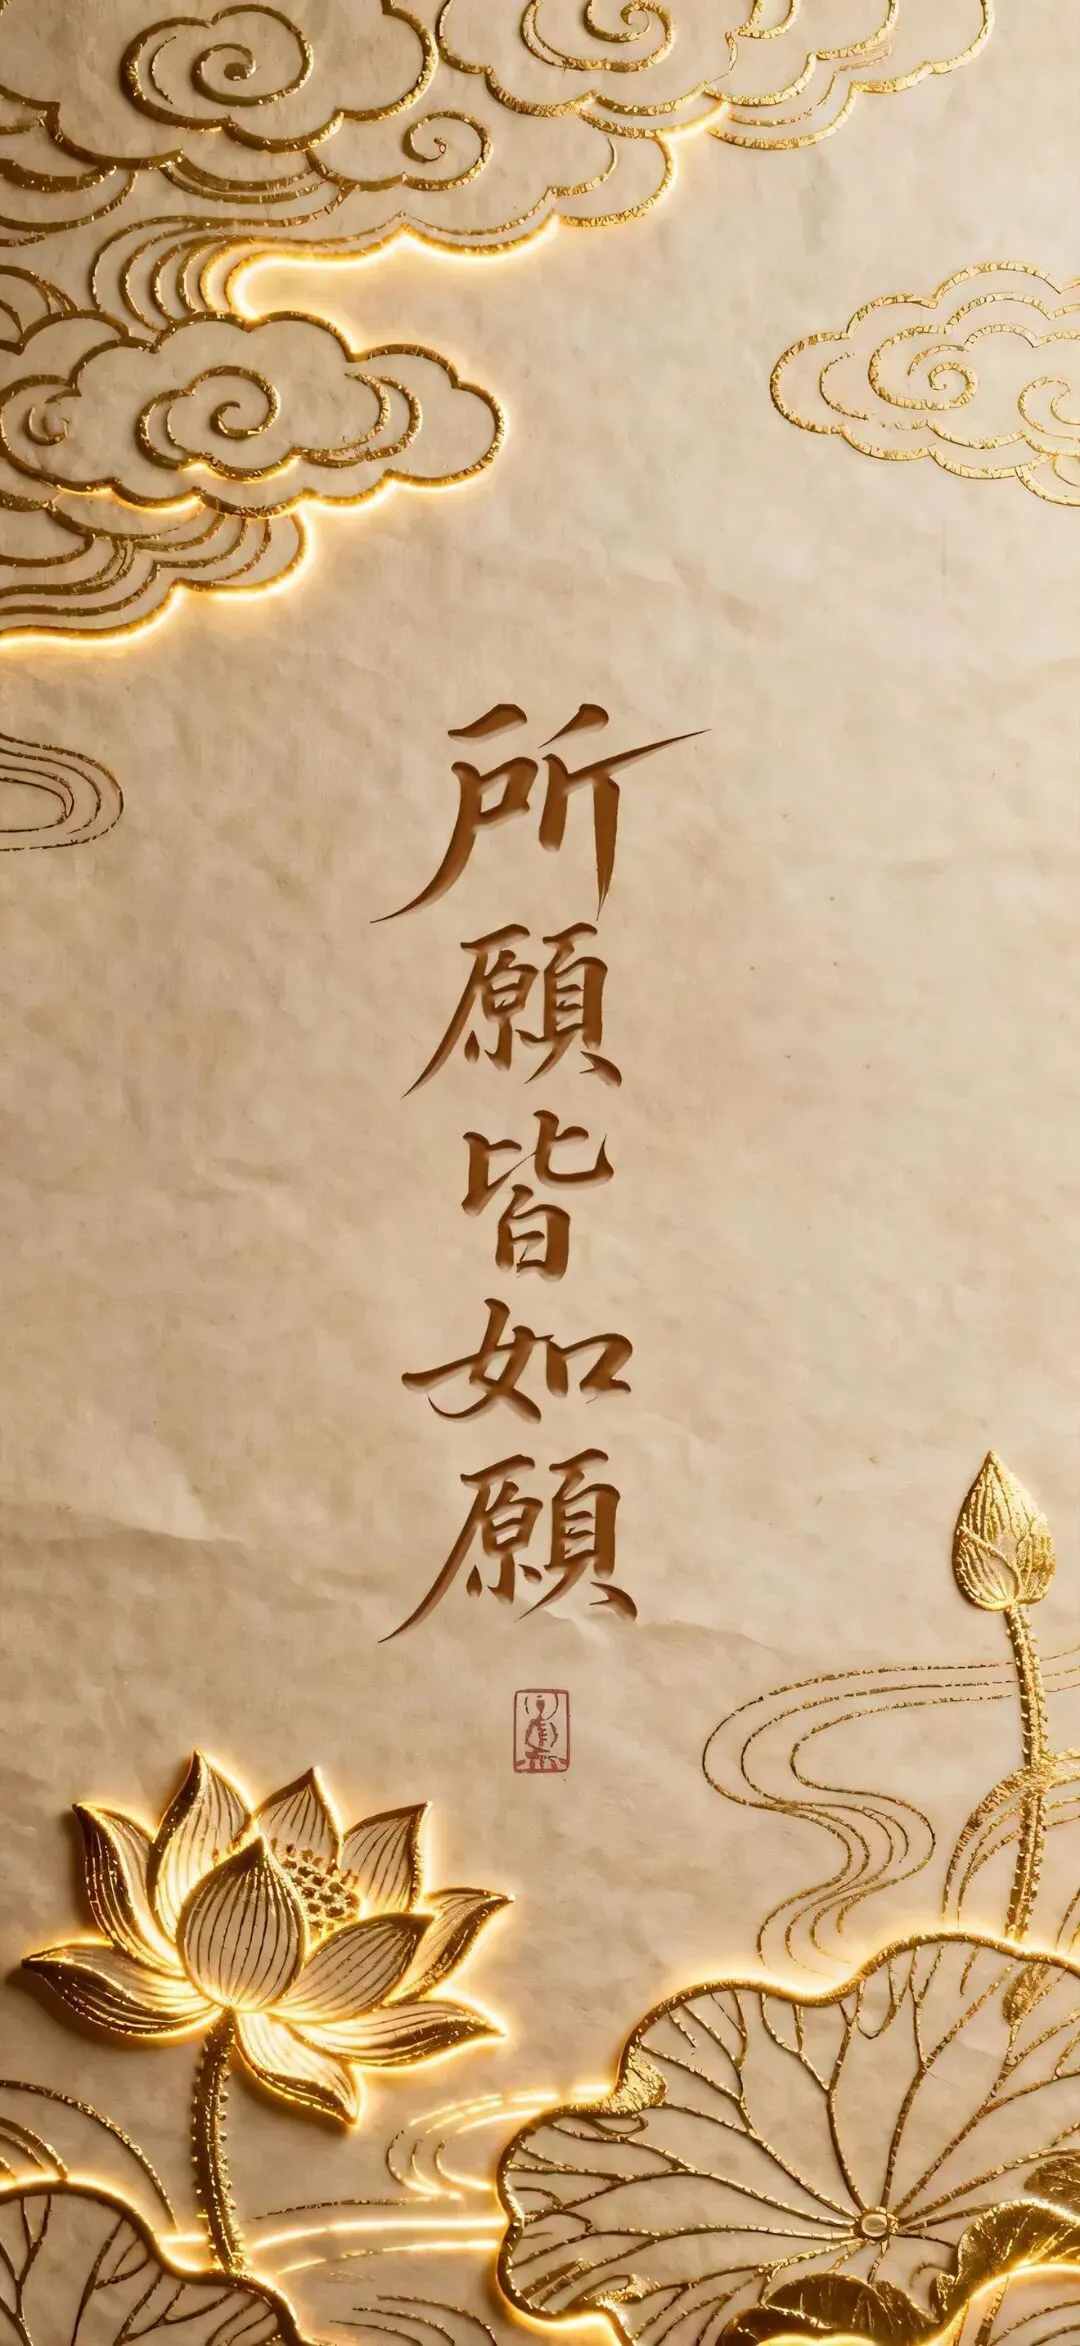 所願皆如願